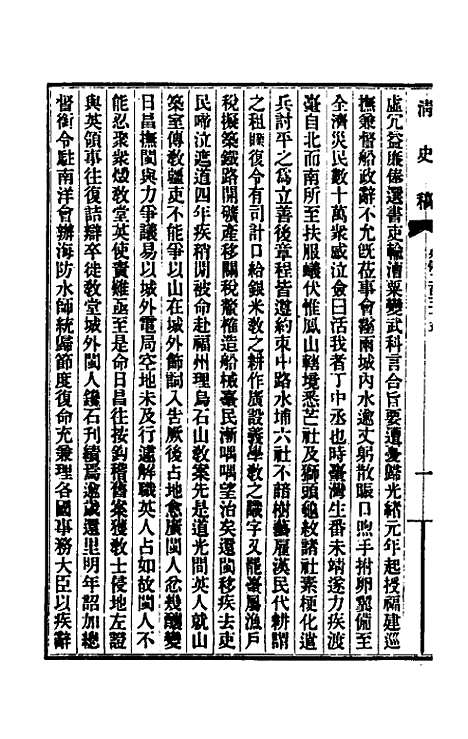 清史稿
虛冗益廉俸選書吏輸漕粟變武科言合旨要遭憂歸光緒元年起授福建巡
撫兼督船政辭不允旣莅事會霪雨城內水逾丈躬散賑口煦手拊卵翼備至
全濟災民數十萬衆感泣僉曰活我者丁中丞也時臺灣生番未靖遂力疾渡
臺自北而南所至扶服蟻伏惟鳳山轄境悉芒社及獅頭龜紋諸社素梗化遣
兵討平之爲立善後章程皆遵約束中路水埔六社不諳樹藝雇漢民代耕謂
之租贌復令有司計口給銀米敎之耕作廣設義學敎之識字又罷臺屬漁戶
稅擬築鐵路開礦產移關稅釐榷造船械臺民漸喁喁望治矣還閩移疾去吏
民啼泣遮道四年疾稍閒被命赴福州理烏石山敎案先是道光間英人就山
築室傳敎疆吏不能爭以山在城外飾詞入告厥後占地愈廣閩人忿幾釀變
日昌撫閩與力爭議易以城外電局空地未及行遽解職英人占如故閩人不
能忍聚衆燬敎堂英使責難亟至是命日昌往按鉤稽舊案獲敎士侵地左證
與英領事往復詰辯卒徙敎堂城外閩人鑱石刊績焉逾歲還里明年詔加總
督銜令駐南洋會辦海防水師統歸節度復命充兼理各國事務大臣以疾辭